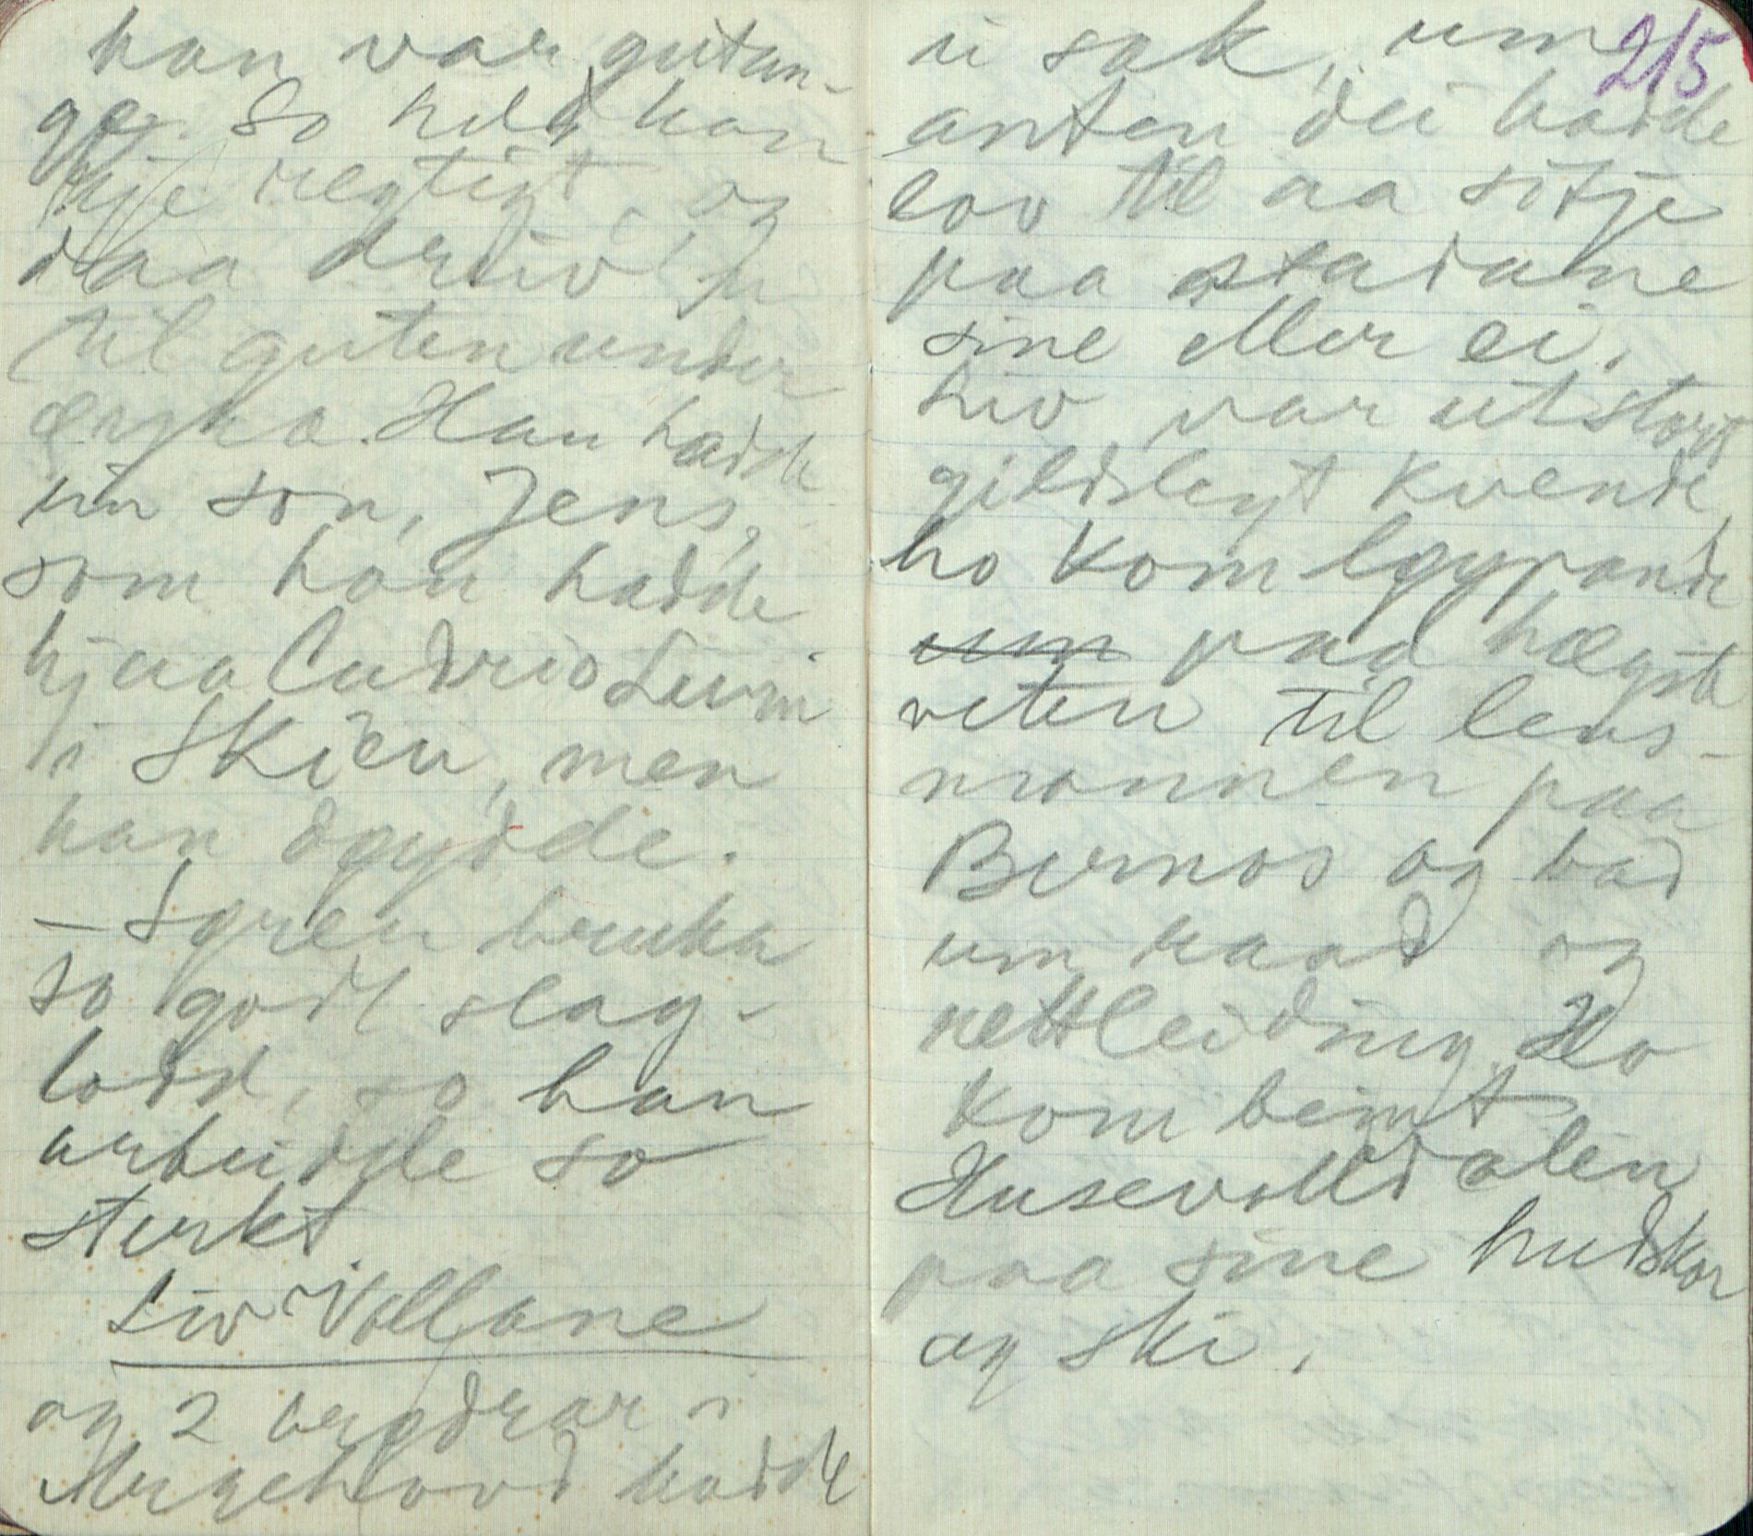 han var gutun-
ge. So heldt han
ikje regtigt, og
daa dreiv
til guten under
øyka. Han hadde
ein son, Jens,
som han hadde
hjaa Cudrio Levin
i Skien, men
han døydde.
– Søren bruka
so godt slag-
lodd, so han
arbeidde so
sterkt.
Liv Vollane
og 2 brødrar i
hadde
ei sak, um
215
anten dei hadde
lov til aa sitje
paa stadane
sine eller ei.
Liv var eit stort
gildslegt kvende,
ho kom løypande
um paa høgste
veten til lens-
mannen paa
Bernos og bad
um raad og
rettleiding. Ho
kom beint
Husevolldalen
paa sine hudskor
og ski.